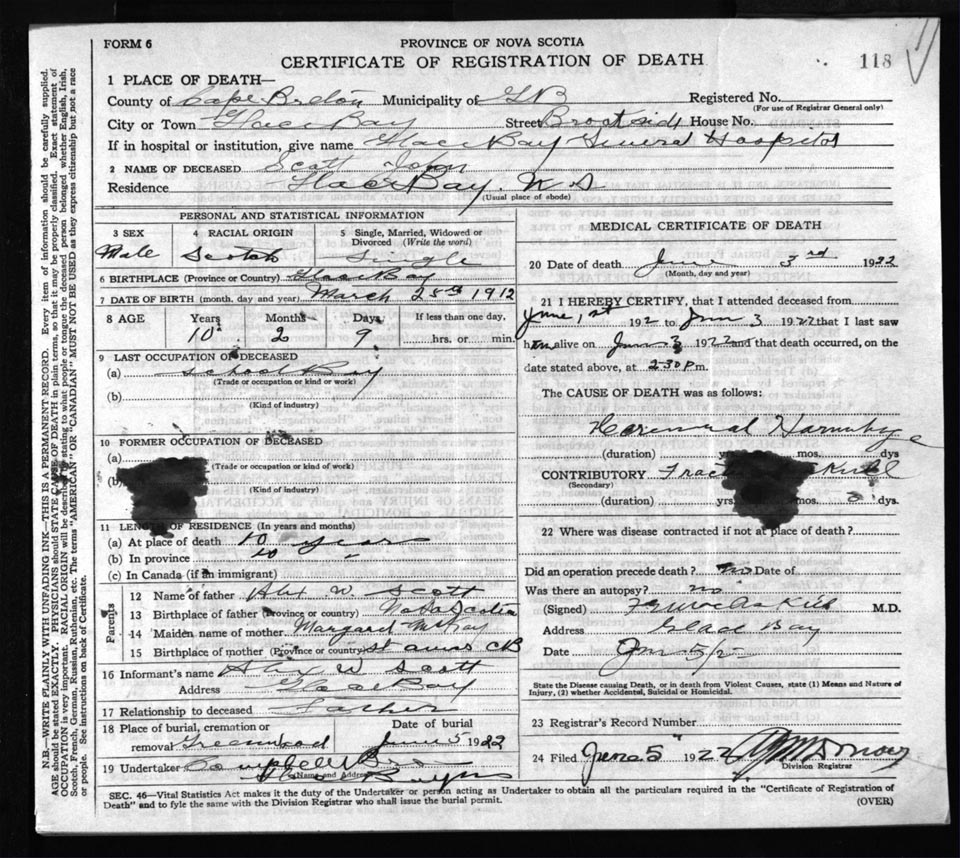 FORM 6
PROVINCE OF NOVA SCOTIA
CERTIFICATE OF REGISTRATION OF DEATH
118
1 PLACE OF DEATH—
County of Cape Breton Municipality of GB Registered No.
(For use of Registrar General only)
City or Town Glace Bay Street Brookside House No.
If in hospital or institution, give name Glace Bay General Hospital
2 NAME OF DECEASED Scott John
Residence Glace Bay. N S
(Usual place of abode)
PERSONAL AND STATISTICAL INFORMATION
3 SEX
Male
4 RACIAL ORIGIN
Scotch
5 Single, Married, Widowed or
Divorced (Write the word)
Single
6 BIRTHPLACE (Province or Country) Glace Bay
7 DATE OF BIRTH (month, day and year) March 25th 1912
8 AGE Years Months Days If less than one day,
10 2 9 hrs. or min.
9 LAST OCCUPATION OF DECEASED
(a) School Boy
(Trade or occupation or kind or work)
(b)
(Kind of industry)
10 FORMER OCCUPATION OF DECEASED
(a)
(Trade or occupation or kind of work)
(b)
(Kind of industry)
11 LENGTH OF RESIDENCE (In years and months)
(a) At place of death 10 years
(b) In province 10 "
(c) In Canada (if an immigrant)
Parents
12 Name of father Alex W. Scott
13 Birthplace of father (Province or country) Nova Scotia
14 Maiden name of mother Margaret
15 Birthplace of mother (Province or country) CB
16 Informant's name Alex W Scott
Address Glace Bay
17 Relationship to deceased Father
18 Place of burial, cremation or Date of burial
removal Greenwood June 5 1922
19 Undertaker Campbell
(Name and Address)
MEDICAL CERTIFICATE OF DEATH
20 Date of death June 3rd 1922
(Month, day and year)
21 I HEREBY CERTIFY, that I attended deceased from
June, 1st 192 to June 3 1922 that I last saw
him alive on June 3 1922 and that death occurred, on the
date stated above, at 2-30 P m.
The CAUSE OF DEATH was as follows:
(duration) yrs. mos. dys
CONTRIBUTORY
(Secondary)
(duration) yrs. mos. 3 dys.
22 Where was disease contracted if not at place of death?
Did an operation precede death? no Date of
Was there an autopsy? no
(Signed) M.D.
Address Glace Bay
Date
State the Disease causing Death, or in death from Violent Causes, state (1) Means and Nature of
Injury, (2) whether Accidental, Suicidal or Homicidal.
23 Registrar's Record Number
24 Filed June 5 1922
Division Registrar
SEC. 46—Vital Statistics Act makes it the duty of the Undertaker or person acting as Undertaker to obtain all the particulars required in the "Certificate of Registration of
Death" and to fyle the same with the Division Registrar who shall issue the burial permit.
(OVER)
N.B.—WRITE PLAINLY WITH UNFADING INK—THIS IS A PERMANENT RECORD. Every item of information should be carefully supplied.
AGE should be stated EXACTLY. PHYSICIANS should STATE CAUSE OF DEATH in plain terms, so that it may be properly classified. Exact statement of
OCCUPATION is very important. RACIAL ORIGIN will be described by stating to what people or tongue the deceased person belonged whether English, Irish,
Scotch, French, German, Russian, Ruthenian, etc. The terms "AMERICAN" OR "CANADIAN" MUST NOT BE USED as they express citizenship but not a race
or people. See instructions on back of Certificate.